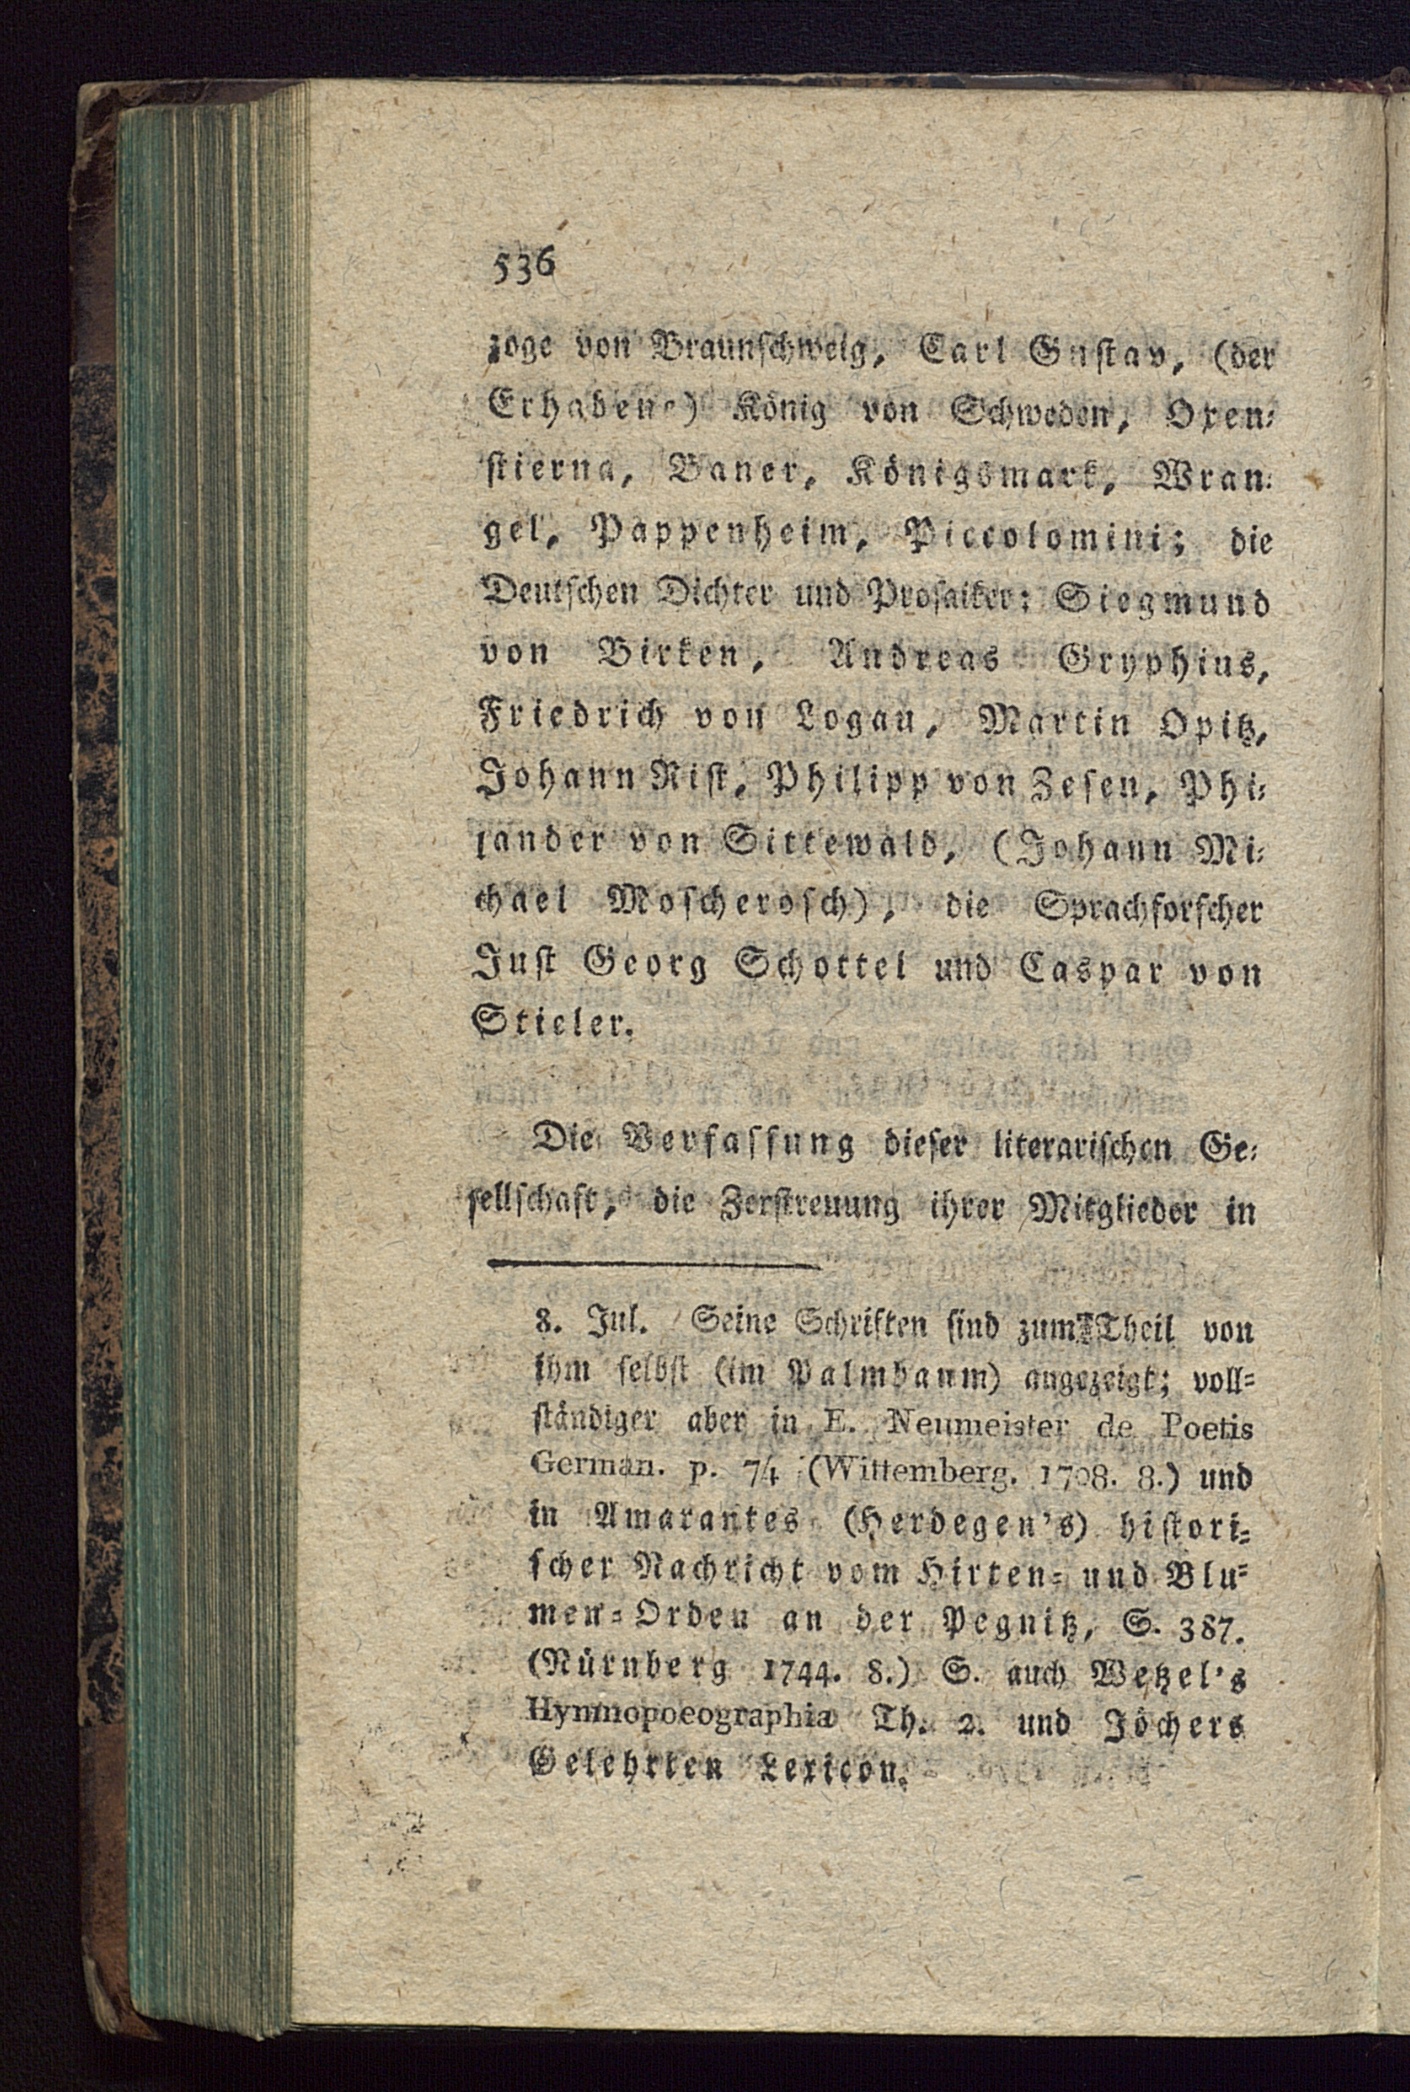 536
zoge von Braunschweig, Carl Gustav, (der
Erhabene) König von Schweden, Oxen-
stierna, Baner, Königsmark, Wran-
gel, Pappenheim, Piccolomini; die
Deutschen Dichter und Prosaiker: Siegmund
von Birken, Andreas Gryphius,
Friedrich von Logau, Martin Opitz,
Johann Rist, Philipp von Zesen, Phi-
lander von Sittewald, (Johann Mi-
chael Moscherosch), die Sprachforscher
Just Georg Schottel und Caspar von
Stieler.
Die Verfassung dieser literarischen Ge-
sellschaft, die Zerstreuung ihrer Mitglieder in
8. Jul. Seine Schriften sind zum Theil von
ihm selbst (im Palmbaum) angezeigt; voll-
ständiger aber in E. Neumeister de Poetis
German. p. 74 (Wittemberg. 1708. 8.) und
in Amarantes (Herdegen's) histori-
scher Nachricht vom Hirten- und Blu-
men-Orden an der Pegnitz, S. 387.
(Nürnberg 1744. 8.) S. auch Wetzel's
Hymnopoeographia Th. 2. und Jöchers
Gelehrten Lexicon.